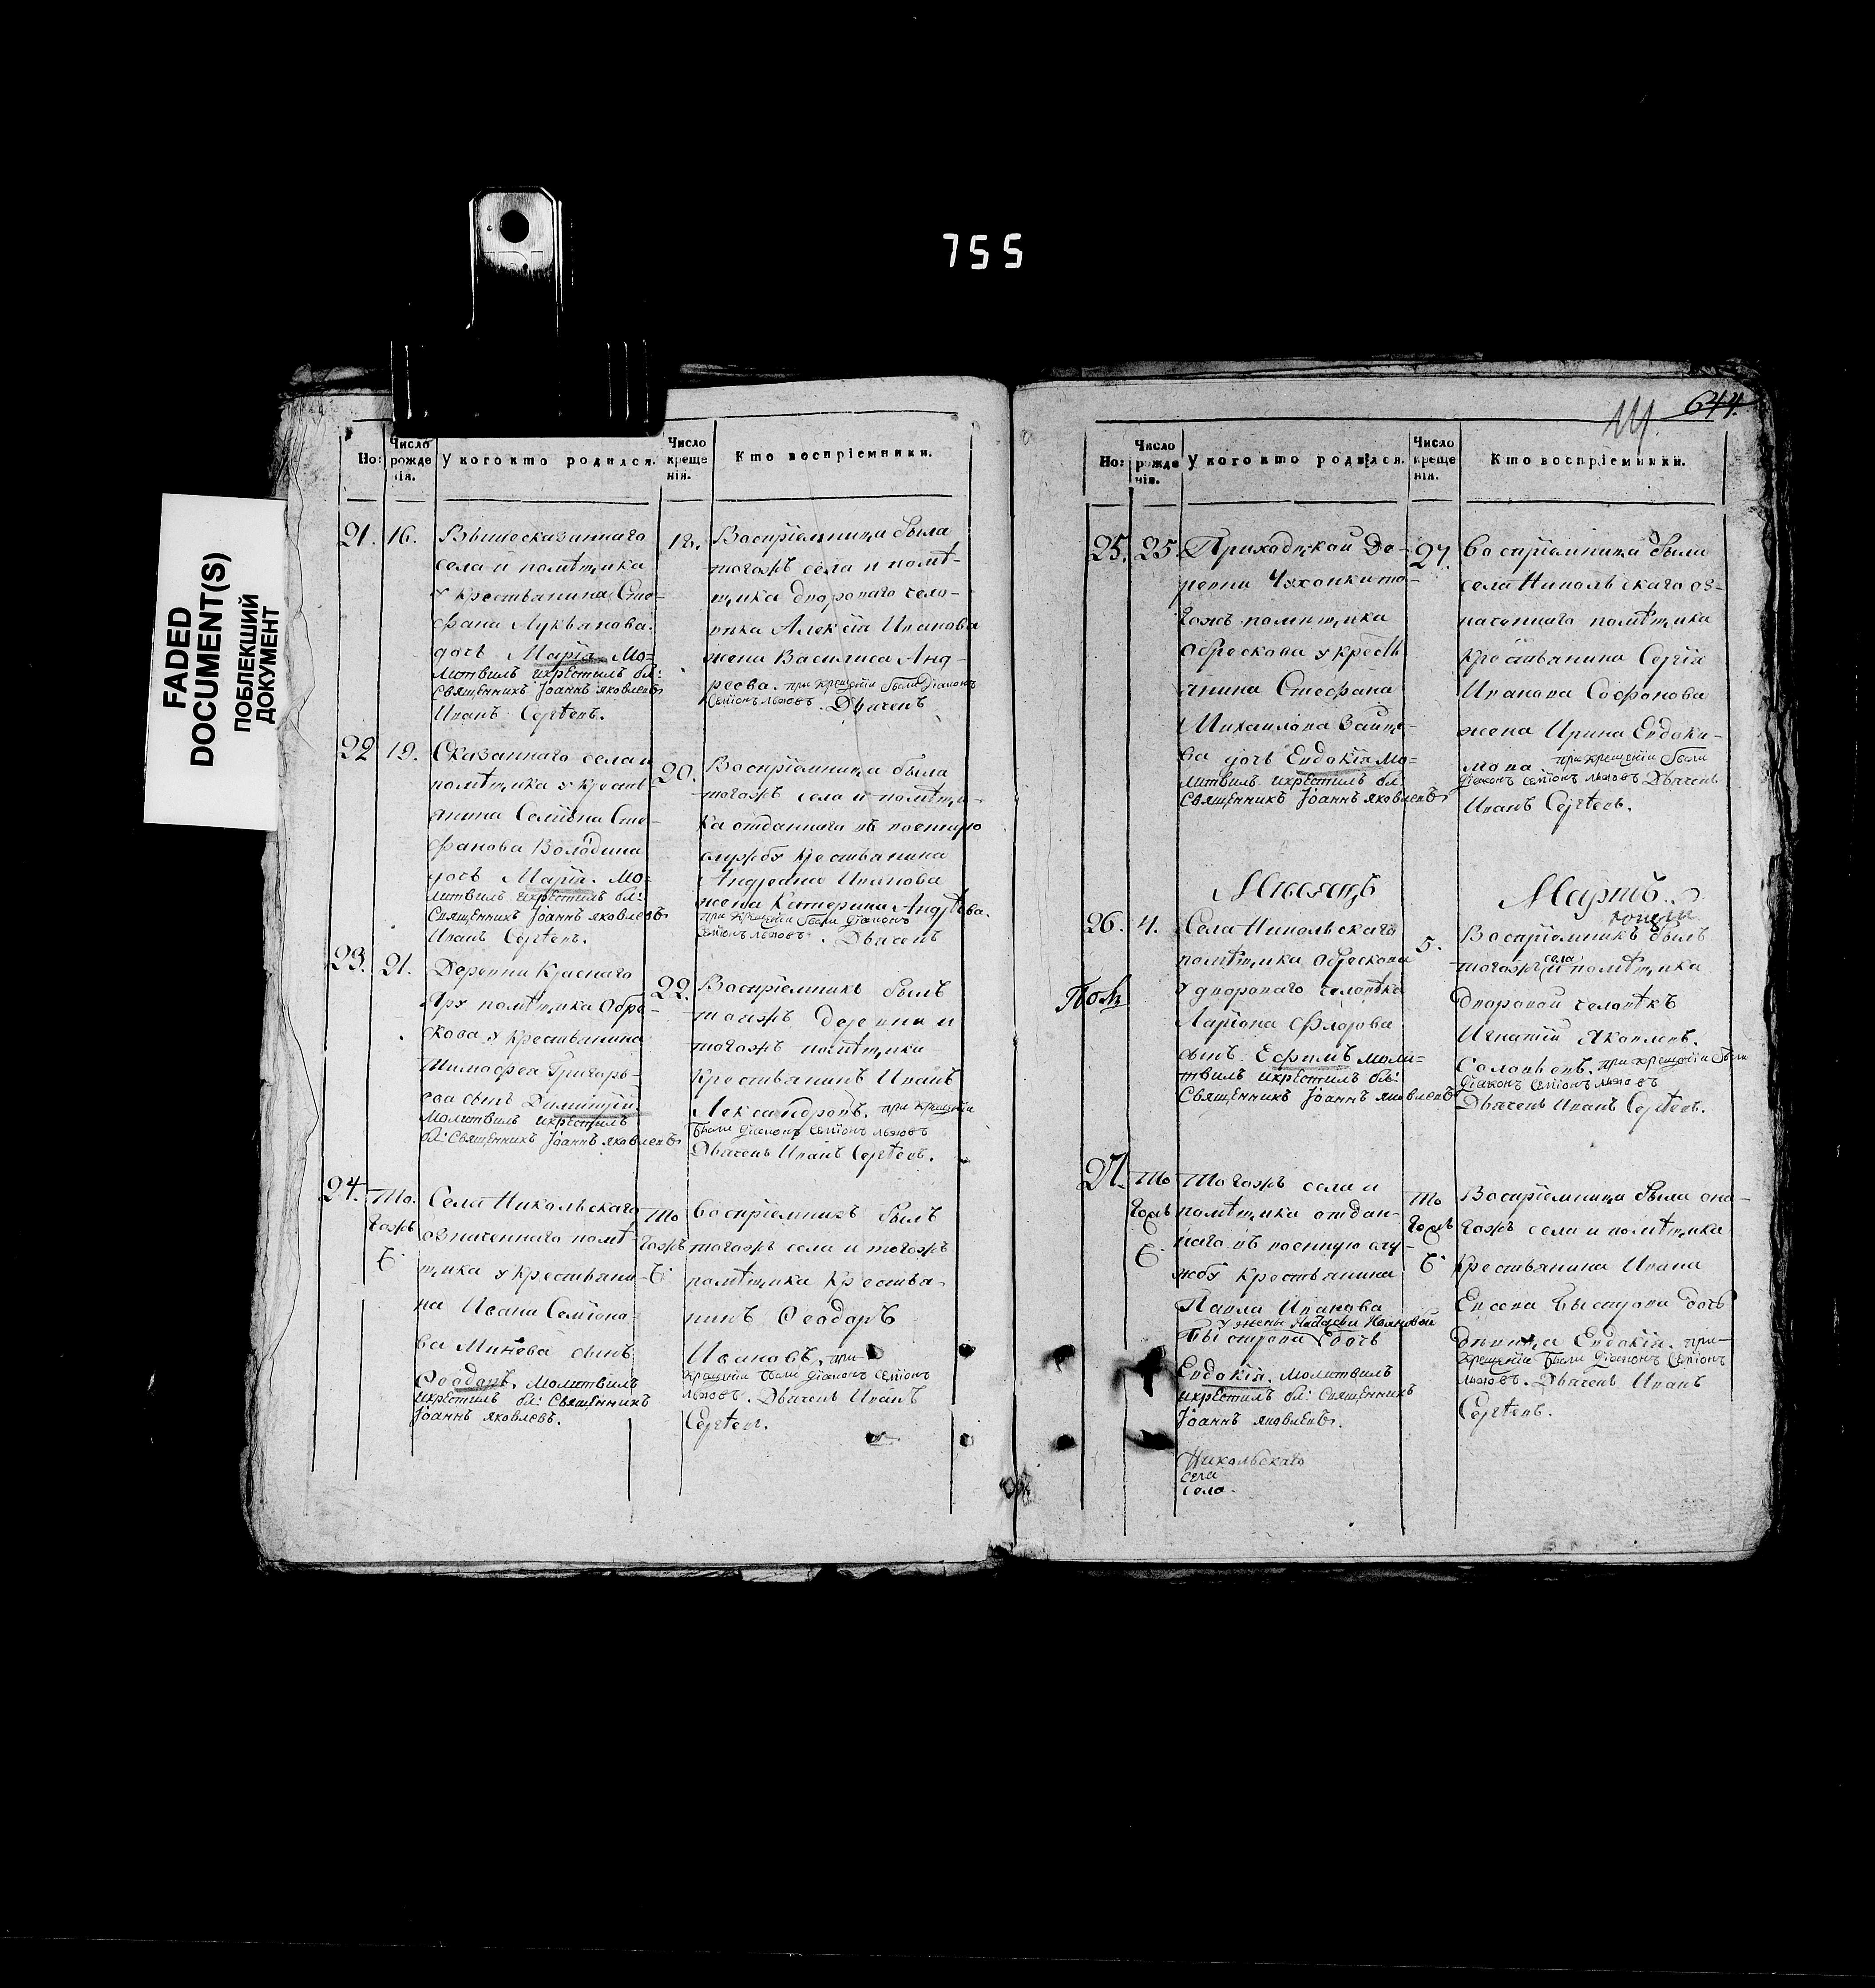 755
FADED
DOCUMENT(S)
ПОБЛЕКШИЙ
ДОКУМЕНТ
Но:
Число
рожде
нія.
У кого кто родился.
Число
креще
нія.
Кто воспріемники.
21.
16.
Вышесказаннаго
села и помѣщика
у крестьянина Сте-
фана Лукьянова
дочь Марія. Мо=
литвилъ икрестилъ бл:
Священникъ Іоаннъ яковлевъ
Иванъ Сергѣевъ.
18.
Воспріемница была
тогожъ села и помѣ-
щика двороваго чело-
вѣка Алексія Иванова
жена Василиса Анд-
реева. при крещеніи были Діаконъ
Семіонъ львовъ. Дьячекъ
22
19.
Сказаннаго села и
помѣщика у крест-
янина Семіона Сте-
фанова Володина
дочь Марія. мо=
литвилъ икрестилъ бл:
Священникъ Іоаннъ яковлевъ
Иванъ Сергѣевъ.
20.
Воспріемница была
тогожъ села и помѣщи-
ка отданнаго въ военную
службу крестьянина
Андреяна Иванова
жена Катерина Андрѣева.
при крещеніи были діаконъ
Семіонъ львовъ. Дьячекъ
23.
21.
Деревни Краснаго
Яру помѣщика Обре-
скова у крестьянина
Тимофея Григорь-
ева сынъ Димитрій.
Молитвилъ икрестилъ
бл: Священникъ Іоаннъ яковлевъ
22.
Воспріемникъ былъ
тоижъ деревни и
тогожъ помѣщика
крестьянинъ Иванъ
Александровъ. при крещеніи
были діаконъ семіонъ львовъ
Дьячекъ Иванъ Сергѣевъ.
24.
То
гожъ
Села Никольскаго
означеннаго помѣ-
щика у крестьяни-
на Ивана Семіоно-
ва Минѣева сынъ
Ѳеодоръ. Молитвилъ
икрестилъ бл: Священникъ
Іоаннъ яковлевъ.
То
гожъ
Воспріемникъ былъ
тогожъ села и тогожъ
помѣщика Крестья-
нинъ Ѳеодоръ
Ивановъ. при-
крещеніи были діаконъ семіонъ
львовъ. Дьячекъ Иванъ
Сергѣевъ.
644.
Но:
Число
рожде
нія.
У кого кто родился.
Число
креще
нія.
Кто воспріемники.
25.
25.
Приходской Де-
ревни Чухонки то-
гожъ помѣщика
Обрескова у крестъ
янина Стефана
Михаилова Зайце-
ва дочь Евдокія мо-
литвилъ икрестилъ бл:
Священникъ Іоаннъ яковлевъ
27.
Воспріемница была
села Никольскаго оз-
наченнаго помѣщика
крестьянина Сергія
Иванова Софронова
жена Ирина Евдоки-
мова. при крещеніи были
діаконъ семіонъ львовъ Дьячекъ
Иванъ Сергѣевъ.
Мѣсяцъ
Мартъ.
26.
4.
Села Никольскаго
помѣщика Обрескова
у двороваго человѣка
Ларіона Флорова
сынъ Ефимъ моли=
твилъ икрестилъ бл:
Священникъ Іоаннъ яковлевъ
5.
Воспріемникъ былъ
тогожъ села и помѣщика
дворовой человѣкъ
Игнатій Яковлевъ.
Соловьевъ. при крещеніи были
діаконъ семіонъ львовъ
Дьячекъ Иванъ Сергѣевъ.
27.
То
гожъ
Тогожъ села и
помѣщика отдан-
наго въ военную слу-
жбу крестьянина
Павла Иванова
Быстрова дочь
Евдокія. Молитвилъ
икрестилъ бл: Священникъ
Іоаннъ яковлевъ.
То
гожъ
Воспріемница была она-
гожъ села и помѣщика
Крестьянина Ивана
Быстрова дочь
девица Евдокія. при-
крещеніи были діаконъ Семіонъ
львовъ. Дьячекъ Иванъ
Сергѣевъ.
Никольскаго
села
села.